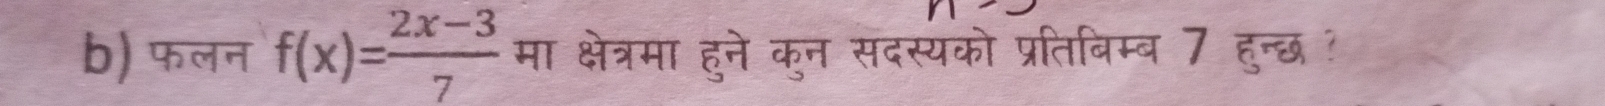 b) फलन f(x)=\frac{2x-3}{7} मा क्षेत्रमा हुने कुन सदस्यको प्रतिबिम्ब 7 हुन्छ ?